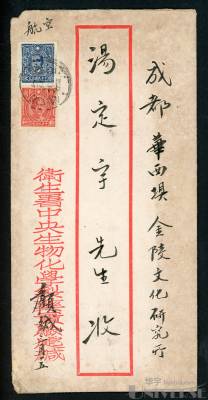 航空
成都華西壩金陵文化研究所
湯定宇先生收
衛生署中央生物化學
顧
緘
五
華宇
UNIVERSE